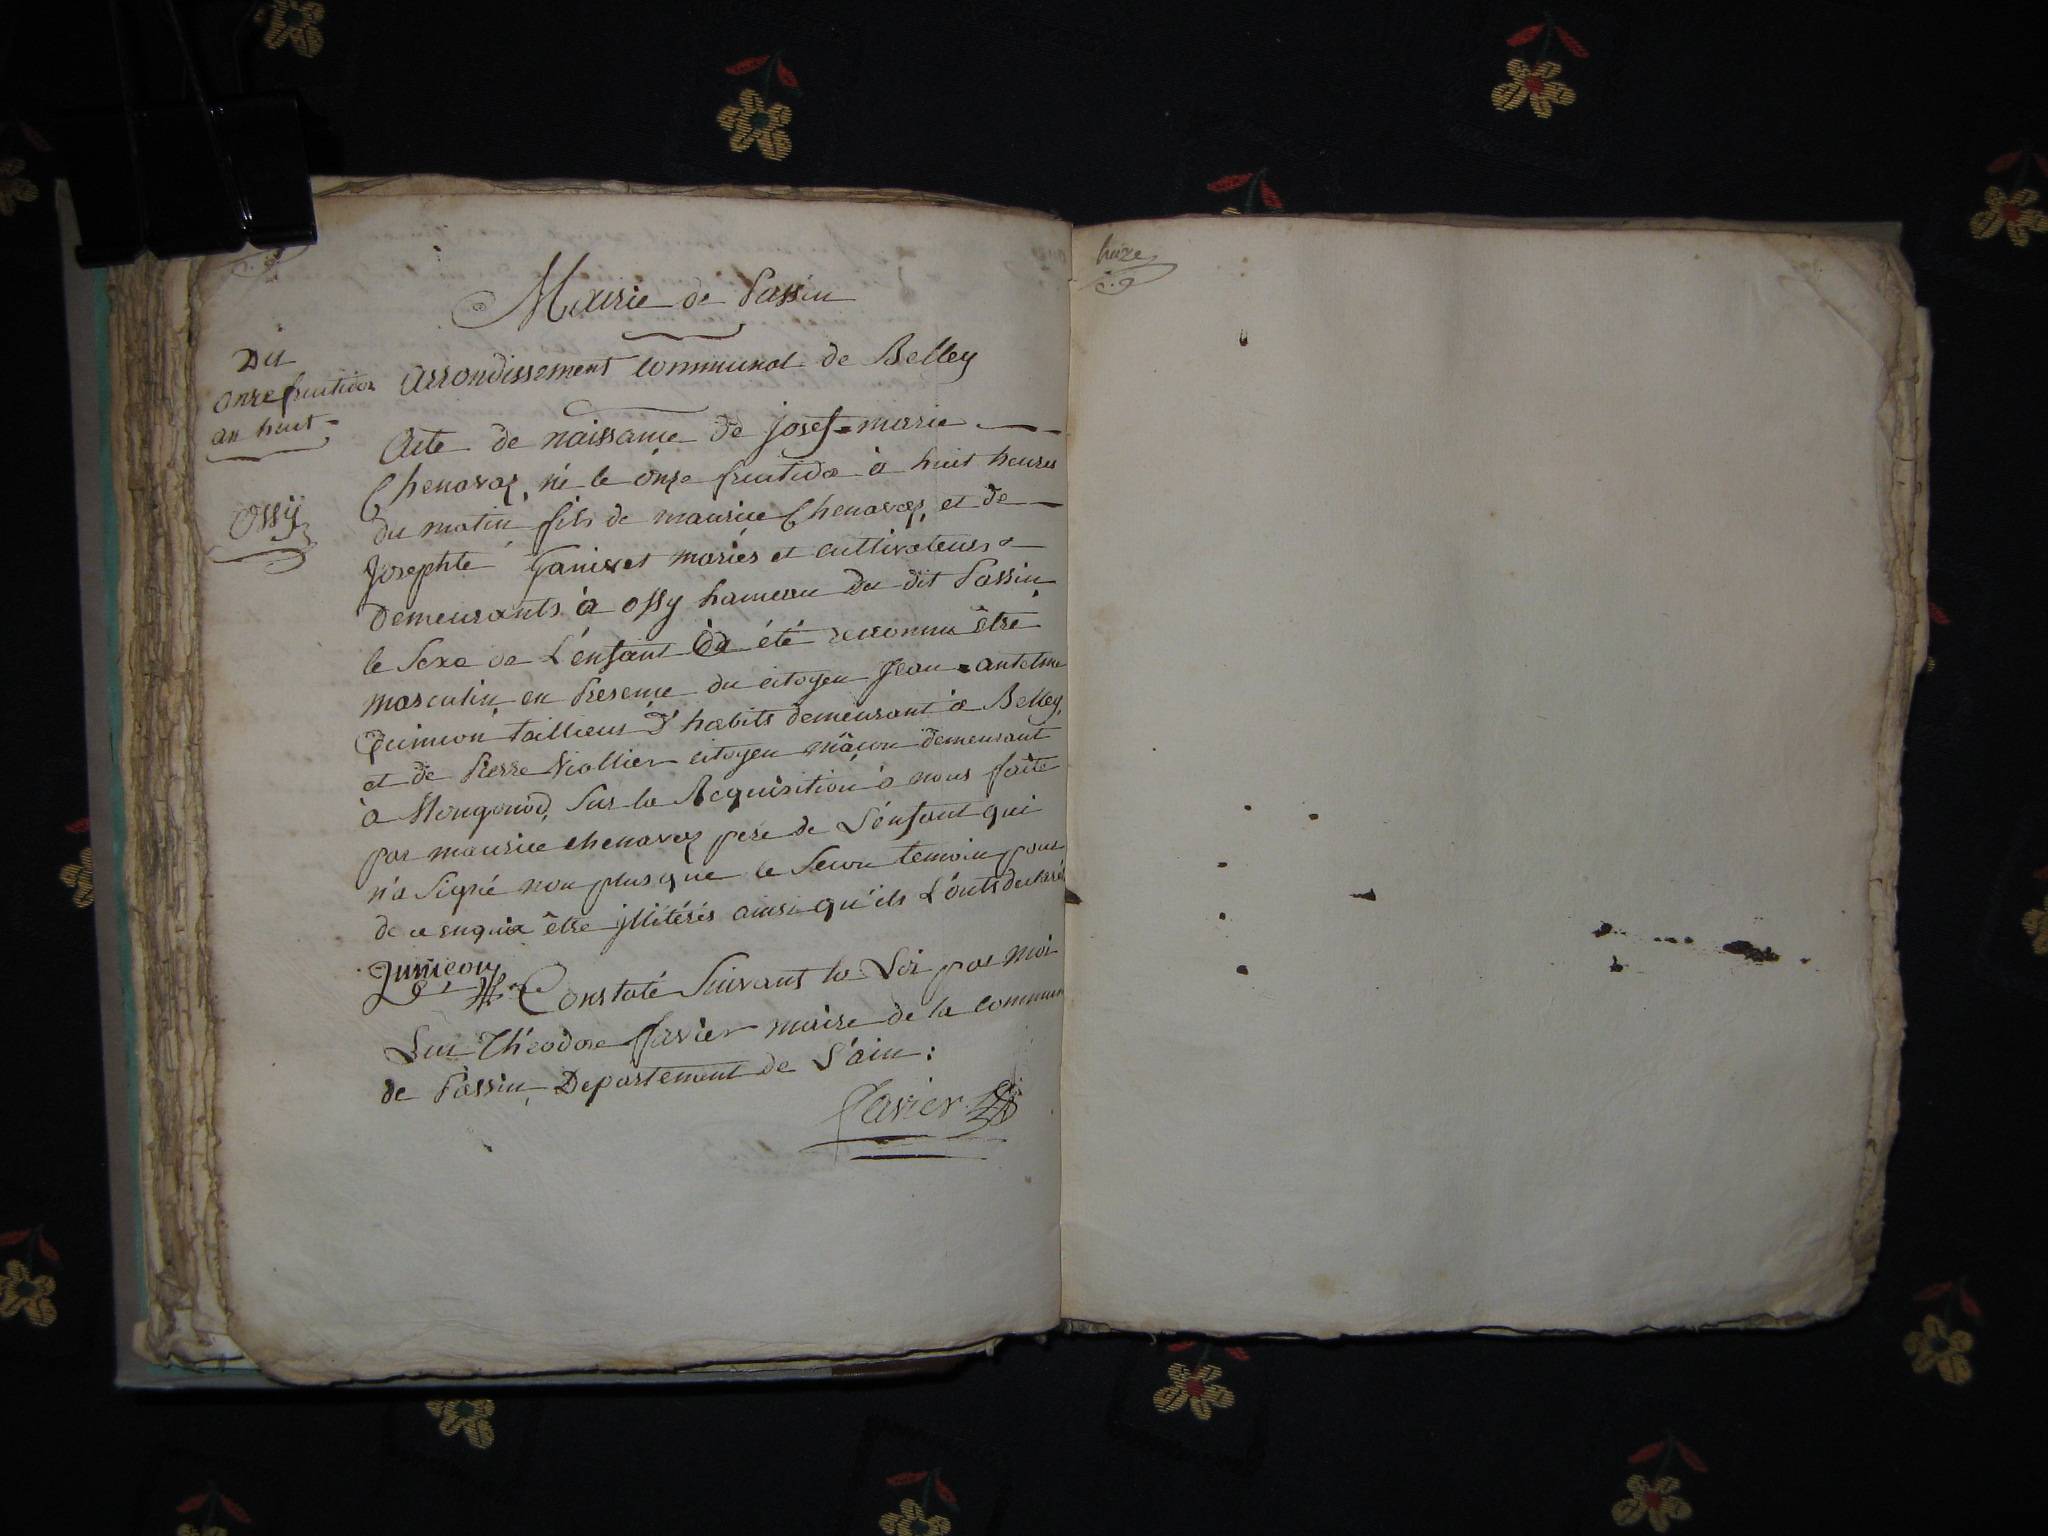 Mairie de Passin
Arrondissement Communal de Belley
Du
onze fructidor
an huit
Ossy
Acte de naissance de josef=marie
Chenavaz, né le onze fructidor à huit heures
du matin fils de maurice Chenavaz, et de
Josephte Ganivet mariés et cultivateurs
Demeurants à ossy hameau du dit Passin
le Sexe de L'enfant a été reconnu être
masculin, en Presence du citoyen Jean=antelme
tallieur d'habits demeurant à Belley,
et de Pierre Viollier citoyen mâçon demeurant
à Mongonod, Sur la Requisition à nous faite
par maurice chenavaz pere de L'énfant qui
n'a Signé non plus que le Secon temoin pour
de ce enquis être jllitérés ainsi qu'ils L'onts declaré
Constaté Suivant la Loi par moi
Luc Théodore favier maire de la commune
de Passin, Departement de L'ain :
favier